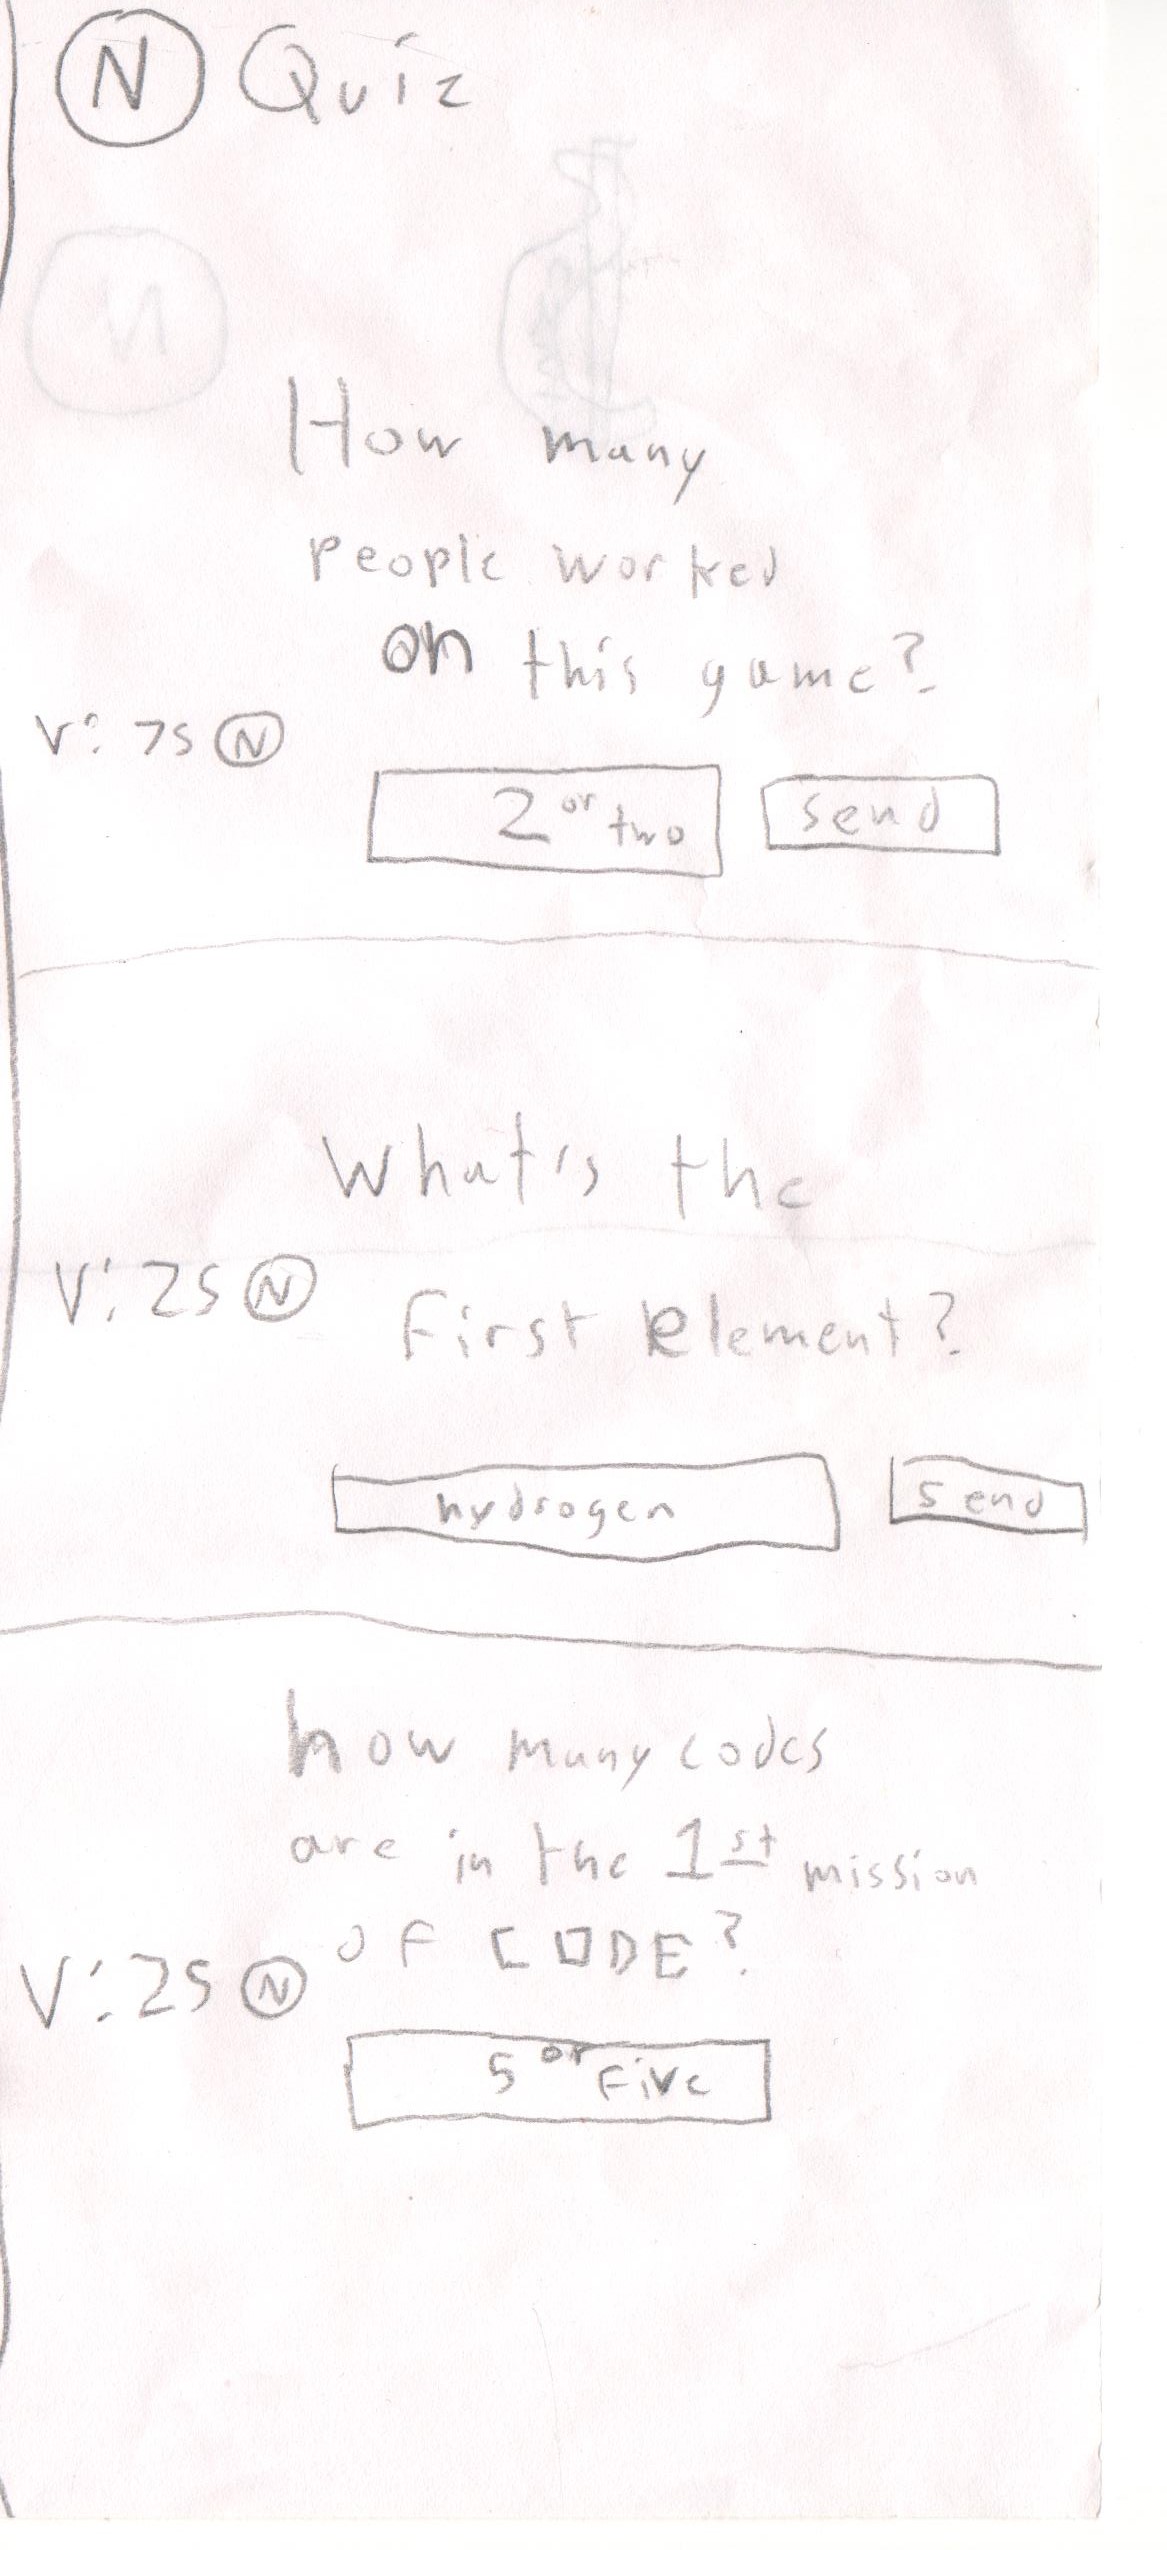 N Quiz
How many
people worked
on this game?
V: 75 N
2 or two send
What's the
V: 25 N first element?
hydrogen send
how many codes
are in the 1st mission
of CODE?
V: 25 N
5 or five